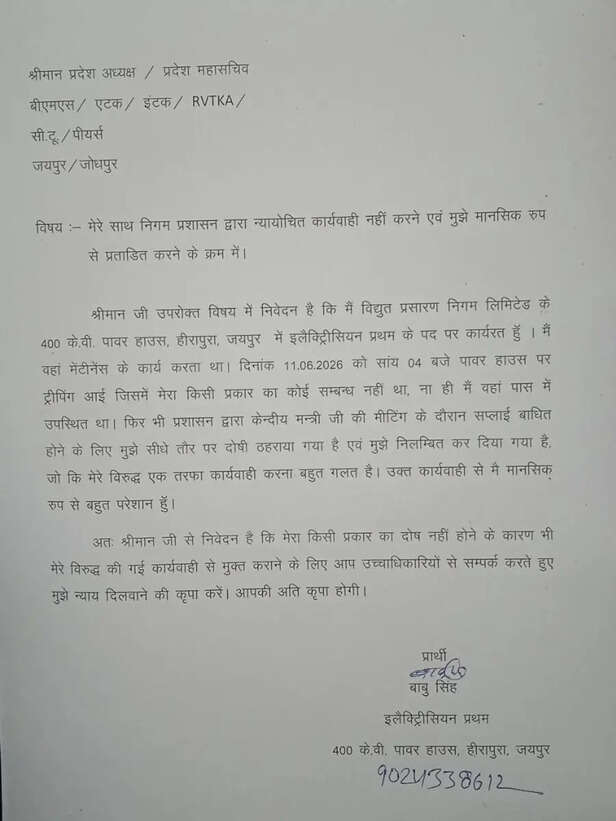 श्रीमान प्रदेश अध्यक्ष / प्रदेश महासचिव
बीएमएस/ एटक/ इंटक/ RVTKA/
सी.टू./पीयर्स
जयपुर/जोधपुर
विषय :– मेरे साथ निगम प्रशासन द्वारा न्यायोचित कार्यवाही नहीं करने एवं मुझे मानसिक रुप
से प्रताडित करने के क्रम में।
श्रीमान जी उपरोक्त विषय में निवेदन है कि मैं विद्युत प्रसारण निगम लिमिटेड के
400 के.वी. पावर हाउस, हीरापुरा, जयपुर में इलैक्ट्रिीसियन प्रथम के पद पर कार्यरत हूँ । मैं
वहां मेंटीनेंस के कार्य करता था। दिनांक 11.06.2026 को सांय 04 बजे पावर हाउस पर
ट्रीपिंग आई जिसमें मेरा किसी प्रकार का कोई सम्बन्ध नहीं था, ना ही मैं वहां पास में
उपस्थित था। फिर भी प्रशासन द्वारा केन्दीय मन्त्री जी की मीटिंग के दौरान सप्लाई बाधित
होने के लिए मुझे सीधे तौर पर दोषी ठहराया गया है एवं मुझे निलम्बित कर दिया गया है,
जो कि मेरे विरुद्ध एक तरफा कार्यवाही करना बहुत गलत है। उक्त कार्यवाही से मै मानसिक्
रुप से बहुत परेशान हूँ।
अतः श्रीमान जी से निवेदन है कि मेरा किसी प्रकार का दोष नहीं होने के कारण भी
मेरे विरुद्ध की गई कार्यवाही से मुक्त कराने के लिए आप उच्चाधिकारियों से सम्पर्क करते हुए
मुझे न्याय दिलवाने की कृपा करें। आपकी अति कृपा होगी।
प्रार्थी
बाबु सिंह
इलैक्ट्रिीसियन प्रथम
400 के.वी. पावर हाउस, हीरापुरा, जयपुर
9024338612